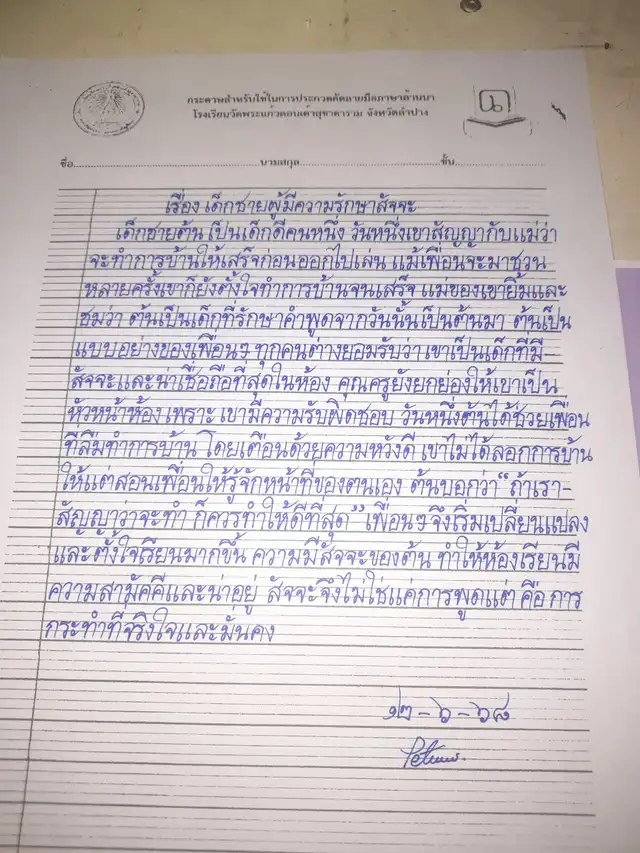 กระดาษสำหรับใช้ในการประกวดคัดลายมือภาษาล้านนา
โรงเรียนวัดพระแก้วดอนเต้าสุชาดาราม จังหวัดลำปาง
ชื่อ นามสกุล ชั้น
เรื่อง เด็กชายผู้มีความรักษาสัจจะ
เด็กชายต้น เป็นเด็กดีคนหนึ่ง วันหนึ่งเขาสัญญากับแม่ว่า
จะทำการบ้านให้เสร็จก่อนออกไปเล่น แม้เพื่อนจะมาชวน
หลายครั้งเขาก็ยังตั้งใจทำการบ้านจนเสร็จ แม่ของเขายิ้มและ
ชมว่า ต้นเป็นเด็กที่รักษาคำพูดจากวันนั้นเป็นต้นมา ต้นเป็น
แบบอย่างของเพื่อนๆ ทุกคนต่างยอมรับว่า เขาเป็นเด็กที่มี-
สัจจะและน่าเชื่อถือที่สุดในห้อง คุณครูยังยกย่องให้เขาเป็น
หัวหน้าห้อง เพราะ เขามีความรับผิดชอบ วันหนึ่งต้นได้ช่วยเพื่อน
ที่ลืมทำการบ้าน โดยเตือนด้วยความหวังดี เขาไม่ได้ลอกการบ้าน
ให้แต่สอนเพื่อนให้รู้จักหน้าที่ของตนเอง ต้นบอกว่า "ถ้าเรา-
สัญญาว่าจะทำ ก็ควรทำให้ดีที่สุด" เพื่อนๆ จึงเริ่มเปลี่ยนแปลง
และตั้งใจเรียนมากขึ้น ความมีสัจจะของต้น ทำให้ห้องเรียนมี
ความสามัคคีและน่าอยู่ สัจจะจึงไม่ใช่แค่การพูดแต่ คือ การ
กระทำที่จริงใจและมั่นคง
๑๒-๖-๖๘